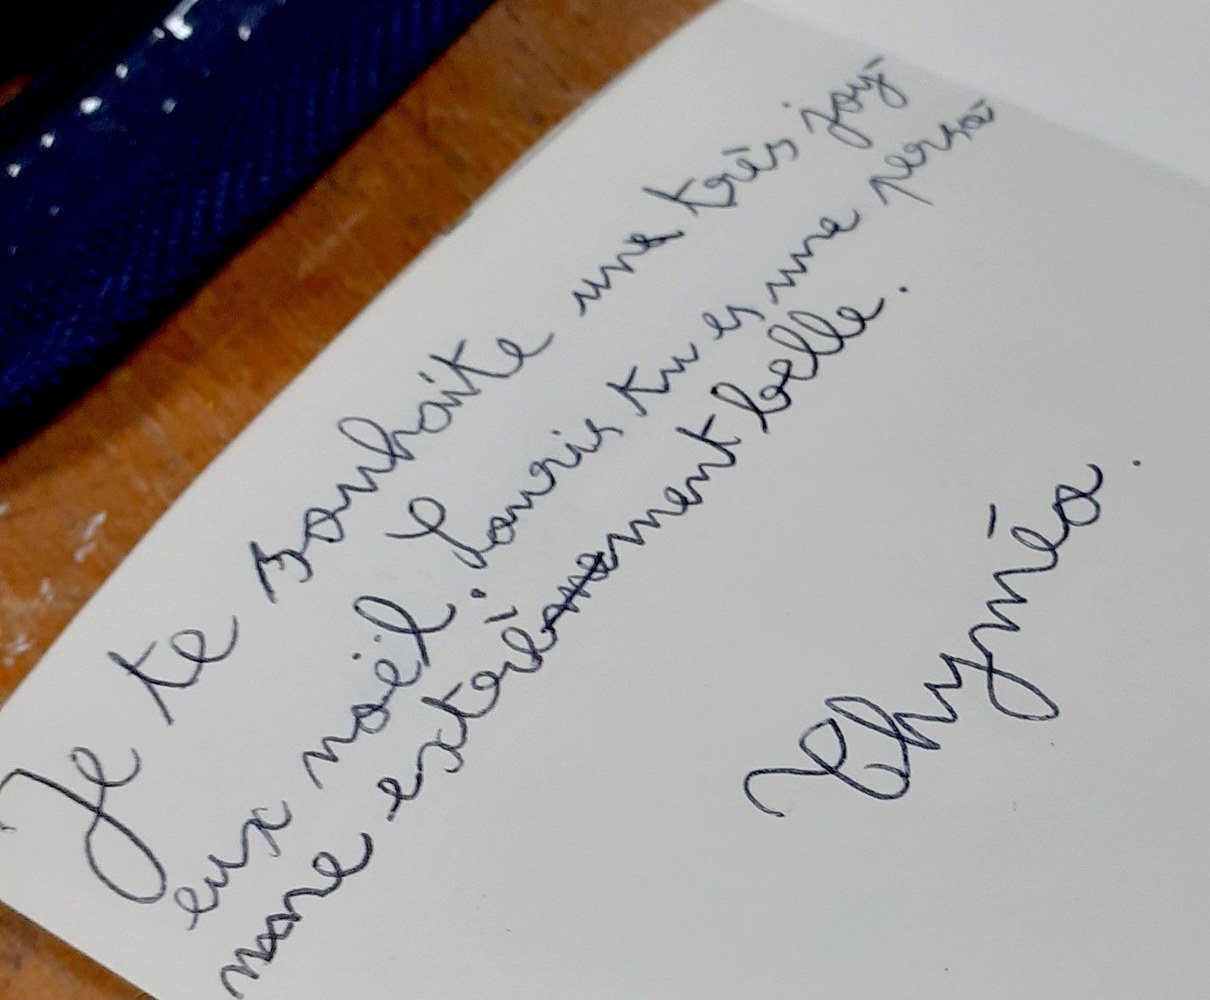 Je te souhaite une très joy-
eux noël. Louris tu es une perso-
nne extrèmement belle.
Thyméa.